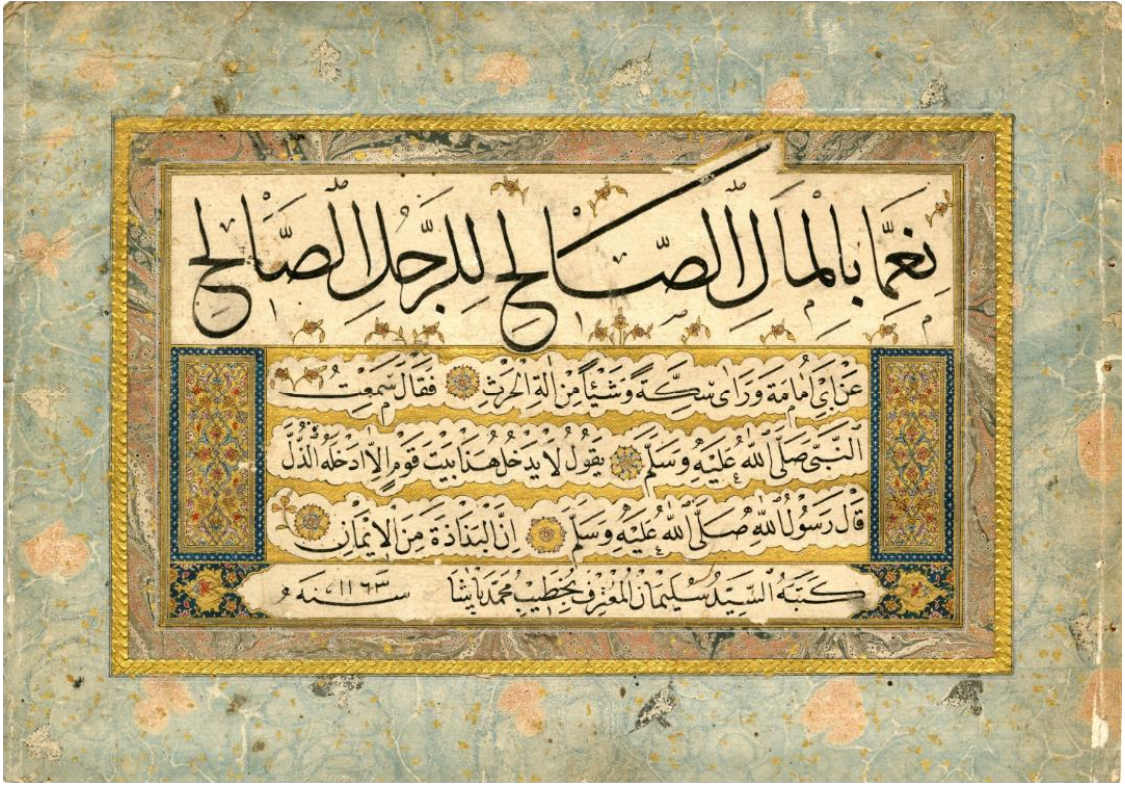 نِعِمَّا بِالْمَالِ الصَّالِحِ لِلرَّجُلِ الصَّالِحِ
عَنْ اَبِي اُمَامَةَ وَرَاٰى سِكَّةً وَشَيْئًا مِنْ اٰلَةِ الْحَرْثِ فَقَالَ سَمِعْتُ
النَّبِيَّ صَلَّى اللهُ عَلَيْهِ وَسَلَّمَ يَقُولُ لَا يَدْخُلُ هٰذَا بَيْتَ قَوْمٍ اِلَّا اَدْخَلَهُ الذُّلَّ
قَالَ رَسُولُ اللهِ صَلَّى اللهُ عَلَيْهِ وَسَلَّمَ اِنَّ الْبَذَاذَةَ مِنَ الْاِيمَانِ
كَتَبَهُ السَّيِّدُ سُلَيْمَانُ الْمُعْتَرِفُ بِخَطِيبِ مُحَمَّد پَاشَا سنه ١١٦٣